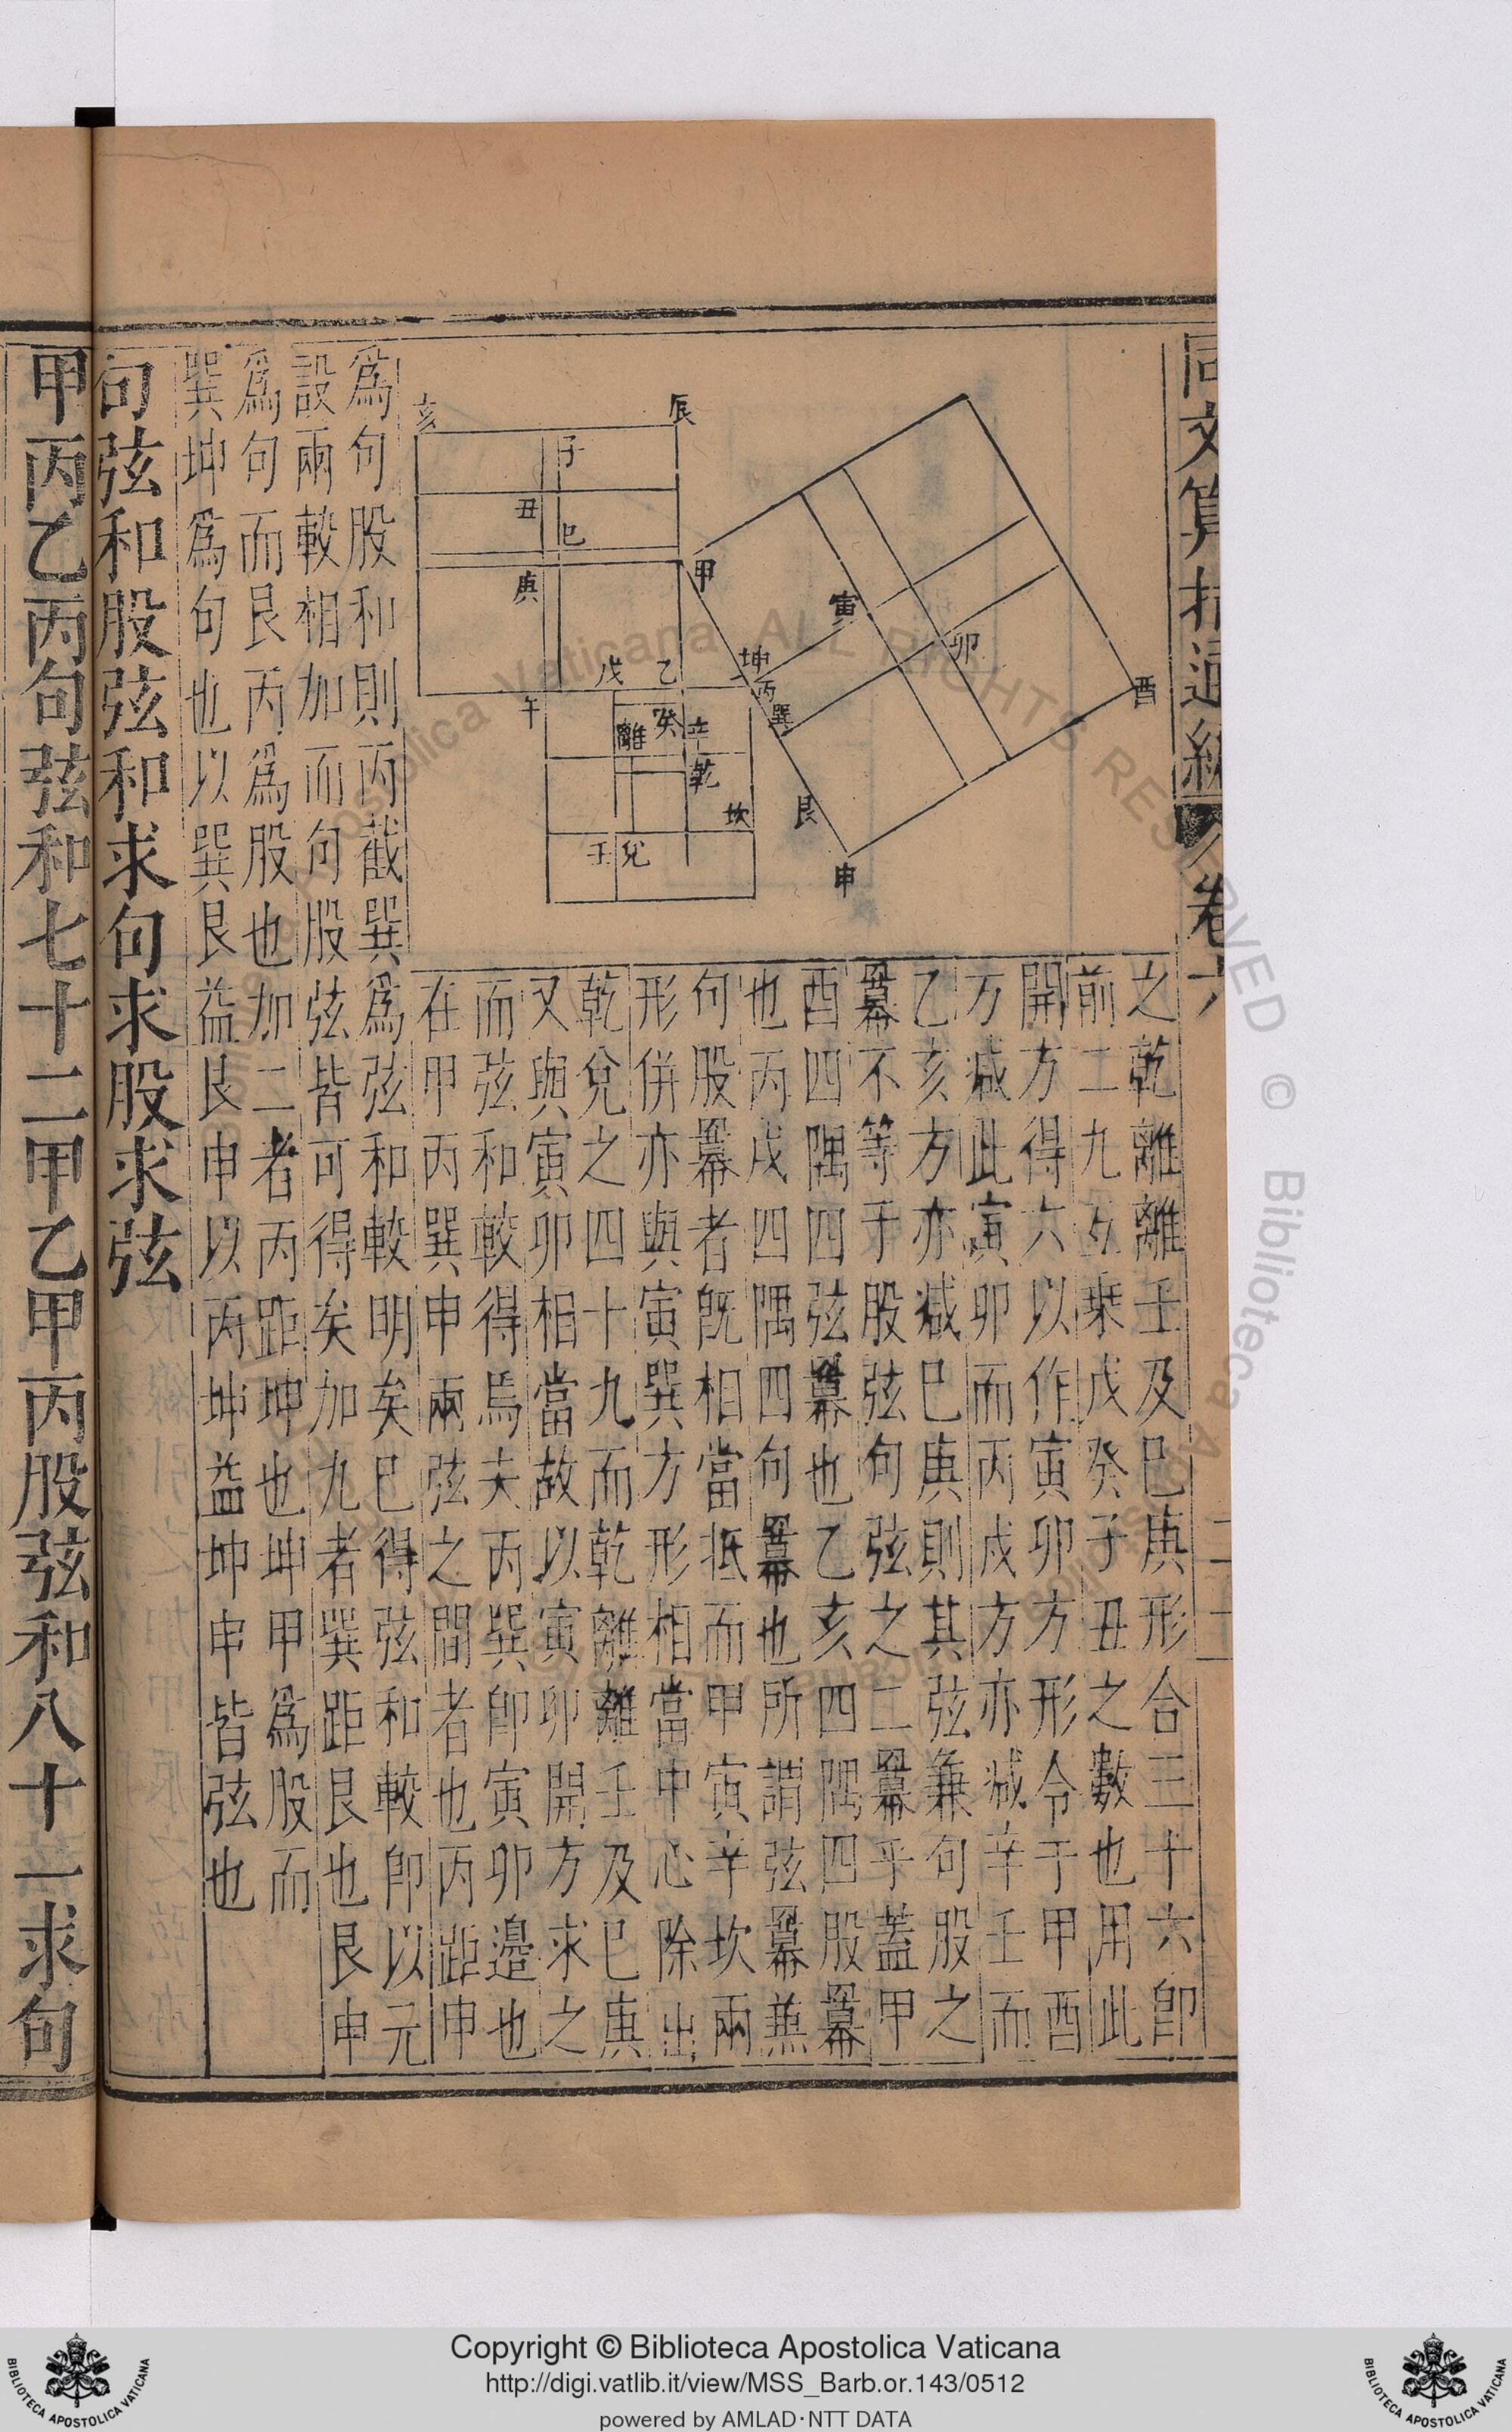 同文算指通編 卷六
二十一
亥
辰
子
丑
巳
庚
甲
寅
卯
酉
戊
乙
坤
丙
巽
午
離
癸
辛
乾
坎
艮
壬
兌
申
之乾離離壬及巳庚形合三十六即
前二九互乘戊癸子丑之數也用此
開方得六以作寅卯方形令于甲酉
方減此寅卯而丙戌方亦減辛壬而
乙亥方亦減巳庚則其弦兼句股之
冪不等于股弦句弦之二冪乎蓋甲
酉四隅四弦冪也乙亥四隅四股冪
也丙戌四隅四句冪也所謂弦冪兼
句股冪者既相當抵而甲寅辛坎兩
形併亦與寅巽方形相當中心除出
乾兌之四十九而乾離離壬及巳庚
又與寅卯相當故以寅卯開方求之
而弦和較得焉夫丙巽即寅卯邊也
在甲丙巽申兩弦之間者也丙距申
為句股和則丙截巽為弦和較明矣巳得弦和較即以元
設兩較相加而句股弦皆可得矣加九者巽距艮也艮申
為句而艮丙為股也加二者丙距坤也坤甲為股而
巽坤為句也以巽艮益艮申以丙坤益坤申皆弦也
句弦和股弦和求句求股求弦
甲丙乙丙句弦和七十二甲乙甲丙股弦和八十一求句
Copyright © Biblioteca Apostolica Vaticana
http://digi.vatlib.it/view/MSS_Barb.or.143/0512
powered by AMLAD·NTT DATA
BIBLIOTECA APOSTOLICA VATICANA
BIBLIOTECA APOSTOLICA VATICANA